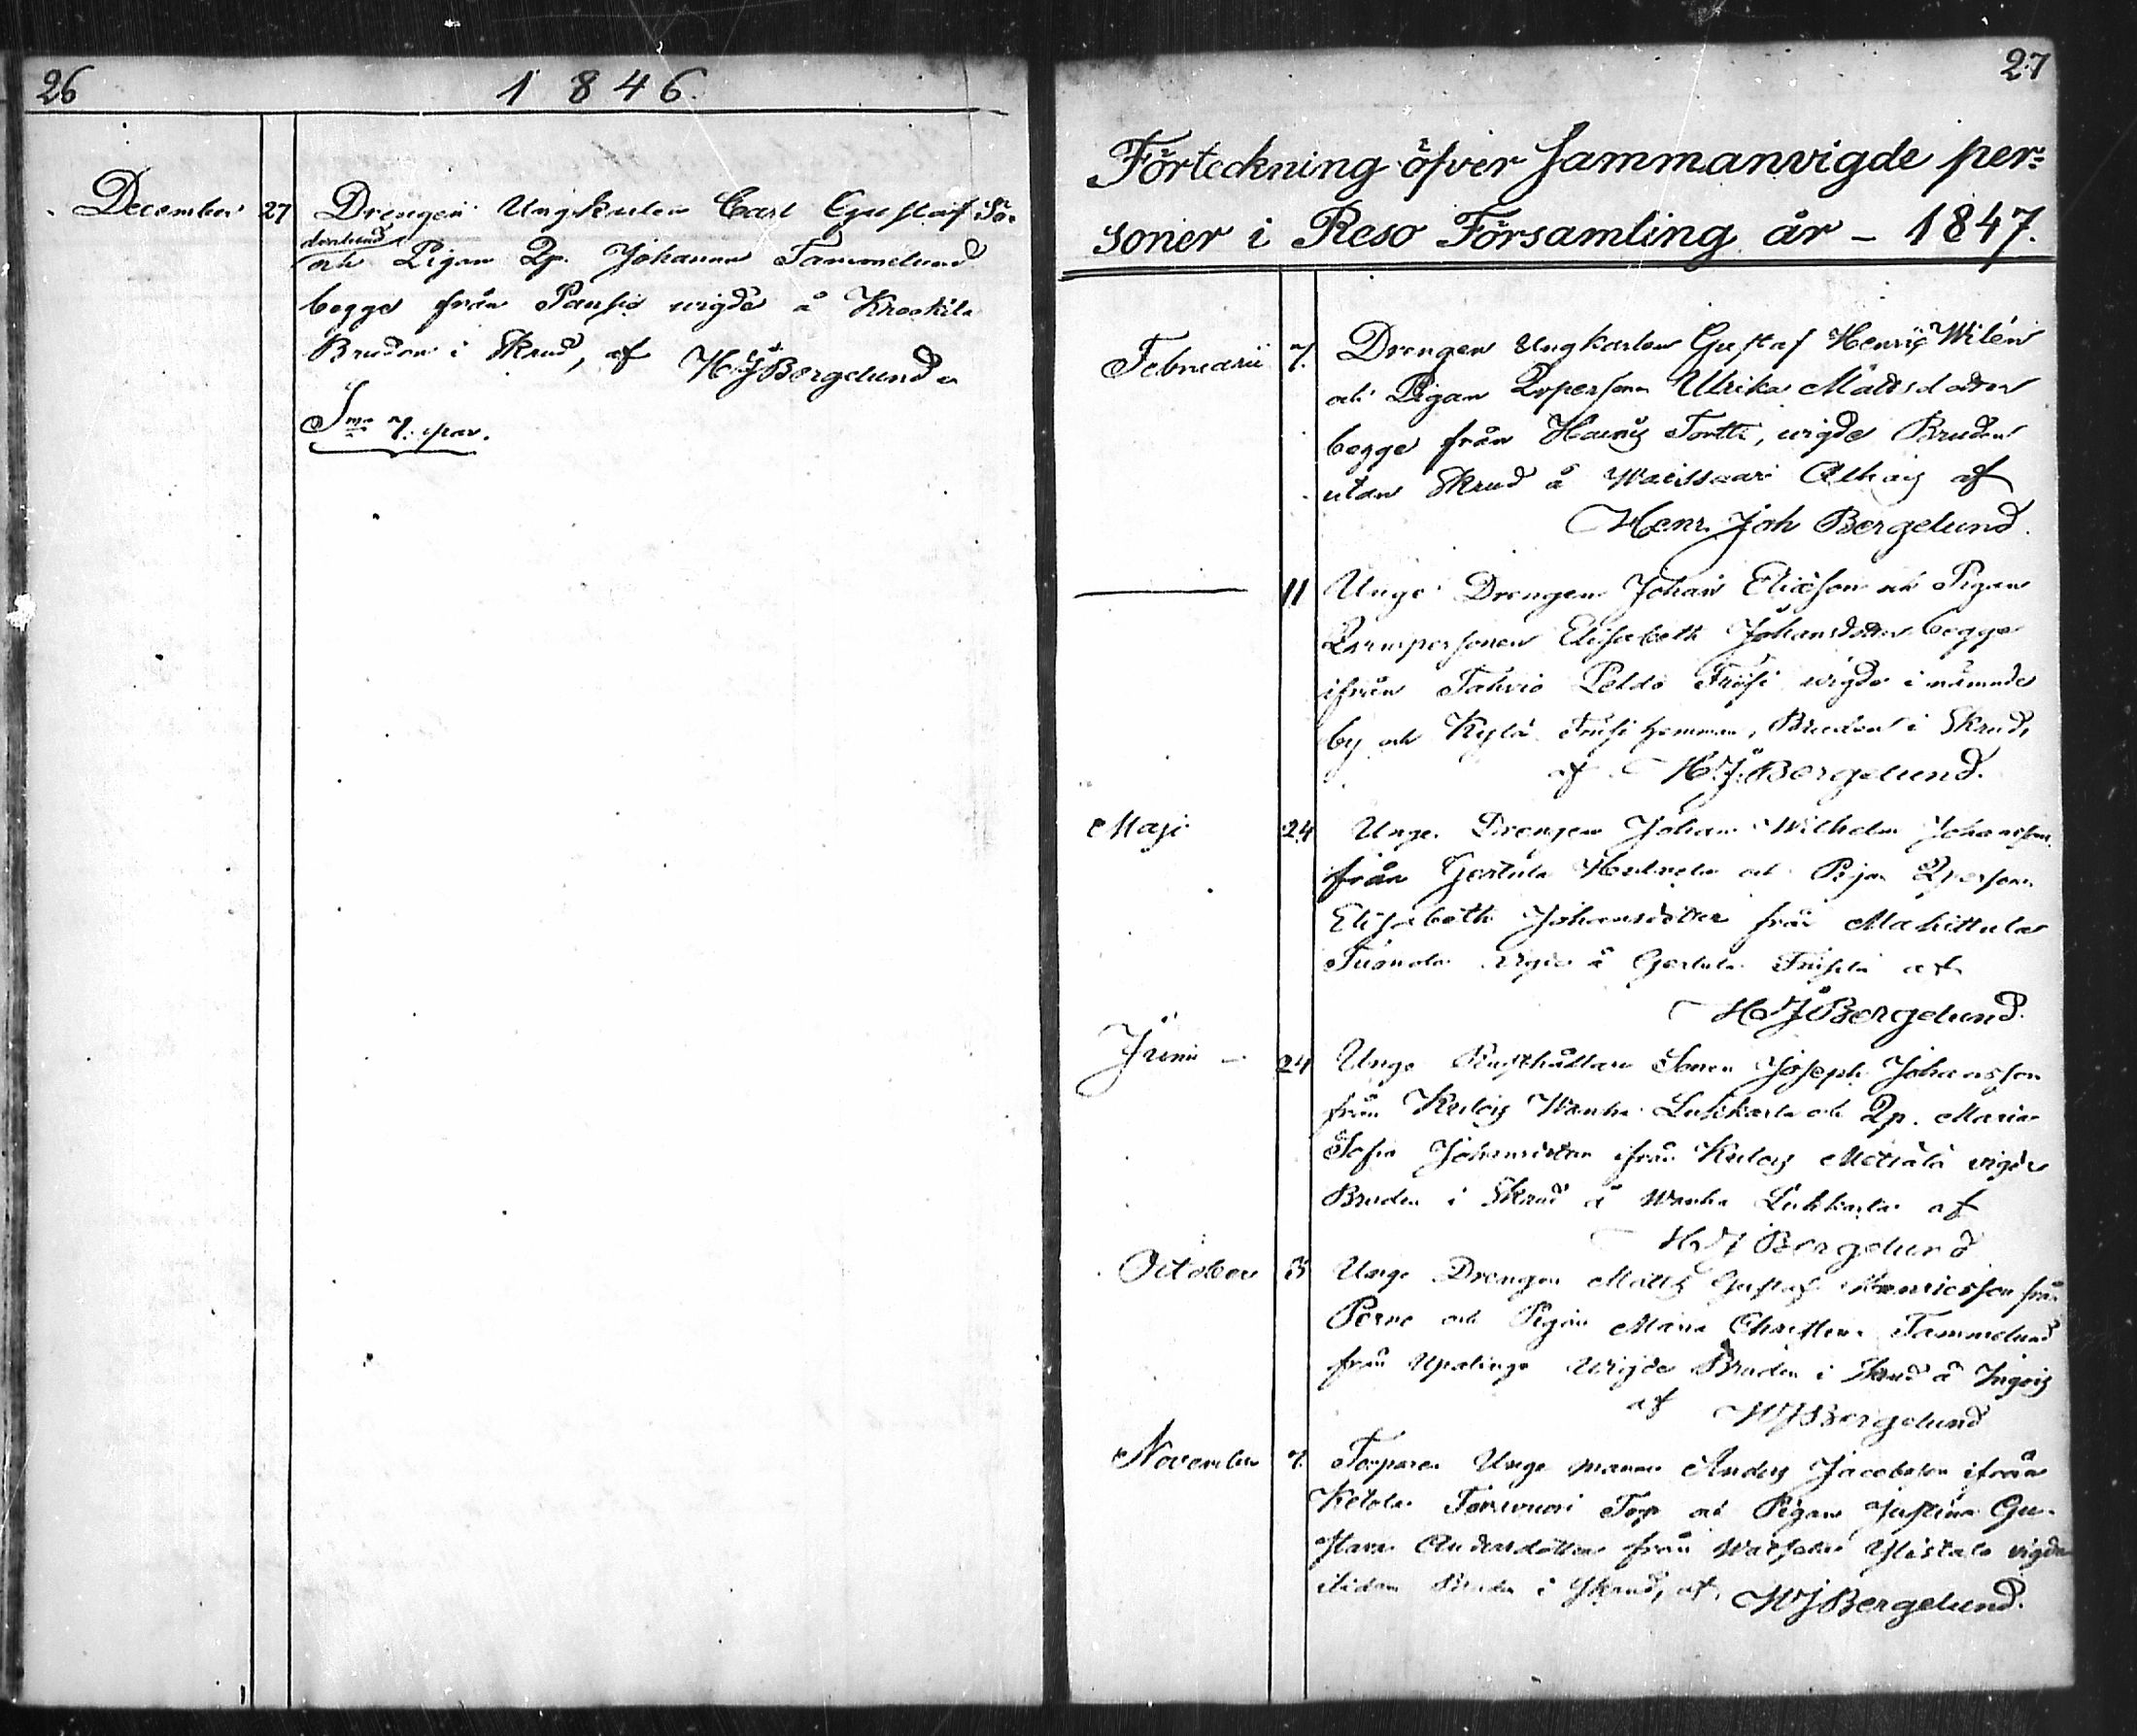 26
1846.
December 27 Drengen Ungkarlen Carl Gustaf Sö-
derlund
och Pigan Qp. Johanna Tammelund
begge från Pansio wigde å Krookila
Bruden i Skrud, af HJBergelund
Sma 7. par.
27
Förteckning öfver Sammanvigde per=
soner i Reso Församling år - 1847.
Februarii 7. Drengen Ungkarlen Gustaf Henric Wilén
och Pigan Qvpersonen Ulrika Mattsdotter
begge från Hauris Tortti, wigde Bruden
utan Skrud å Waissaari af
Henr. Joh Bergelund.
11 Unge Drengen Johan Eliæson och Pigan
Qvinspersonen Elisabeth Johansdotter begge
ifrån Tahvio Peldo wigde i nämnde
by och Kylä hemman, Bruden i Skrud,
af H.J.Bergelund.
Maji 24 Unge Drengen Johan Wilhelm Johansson
från Gertula och Pigan Qperson
Elisabeth Johansdotter från Mahittula
wigde å Gertula af
HJBergelund.
Junii - 24 Unge Rusthållare Sonen Joseph Johansson
från Kulois Wanha Lukkarla och Qp. Maria
Sofia Johansdotter ifrån Kulois vigde
Bruden i Skrud å Wanha Lukkarla af
HJBergelund
October 3 Unge Drengen Matts Gustaf Henricsson från
Perno och Pigan Maria Christina Tammelund
från Upalinge wigde Bruden i Skrud å Ingois
af HJBergelund
November 7. Torparen Unge mannen Anders Jacobsson ifrån
Torp och Pigan Justina Gu-
stava Andersdotter från vigde
Bruden i Skrud, af HJBergelund.